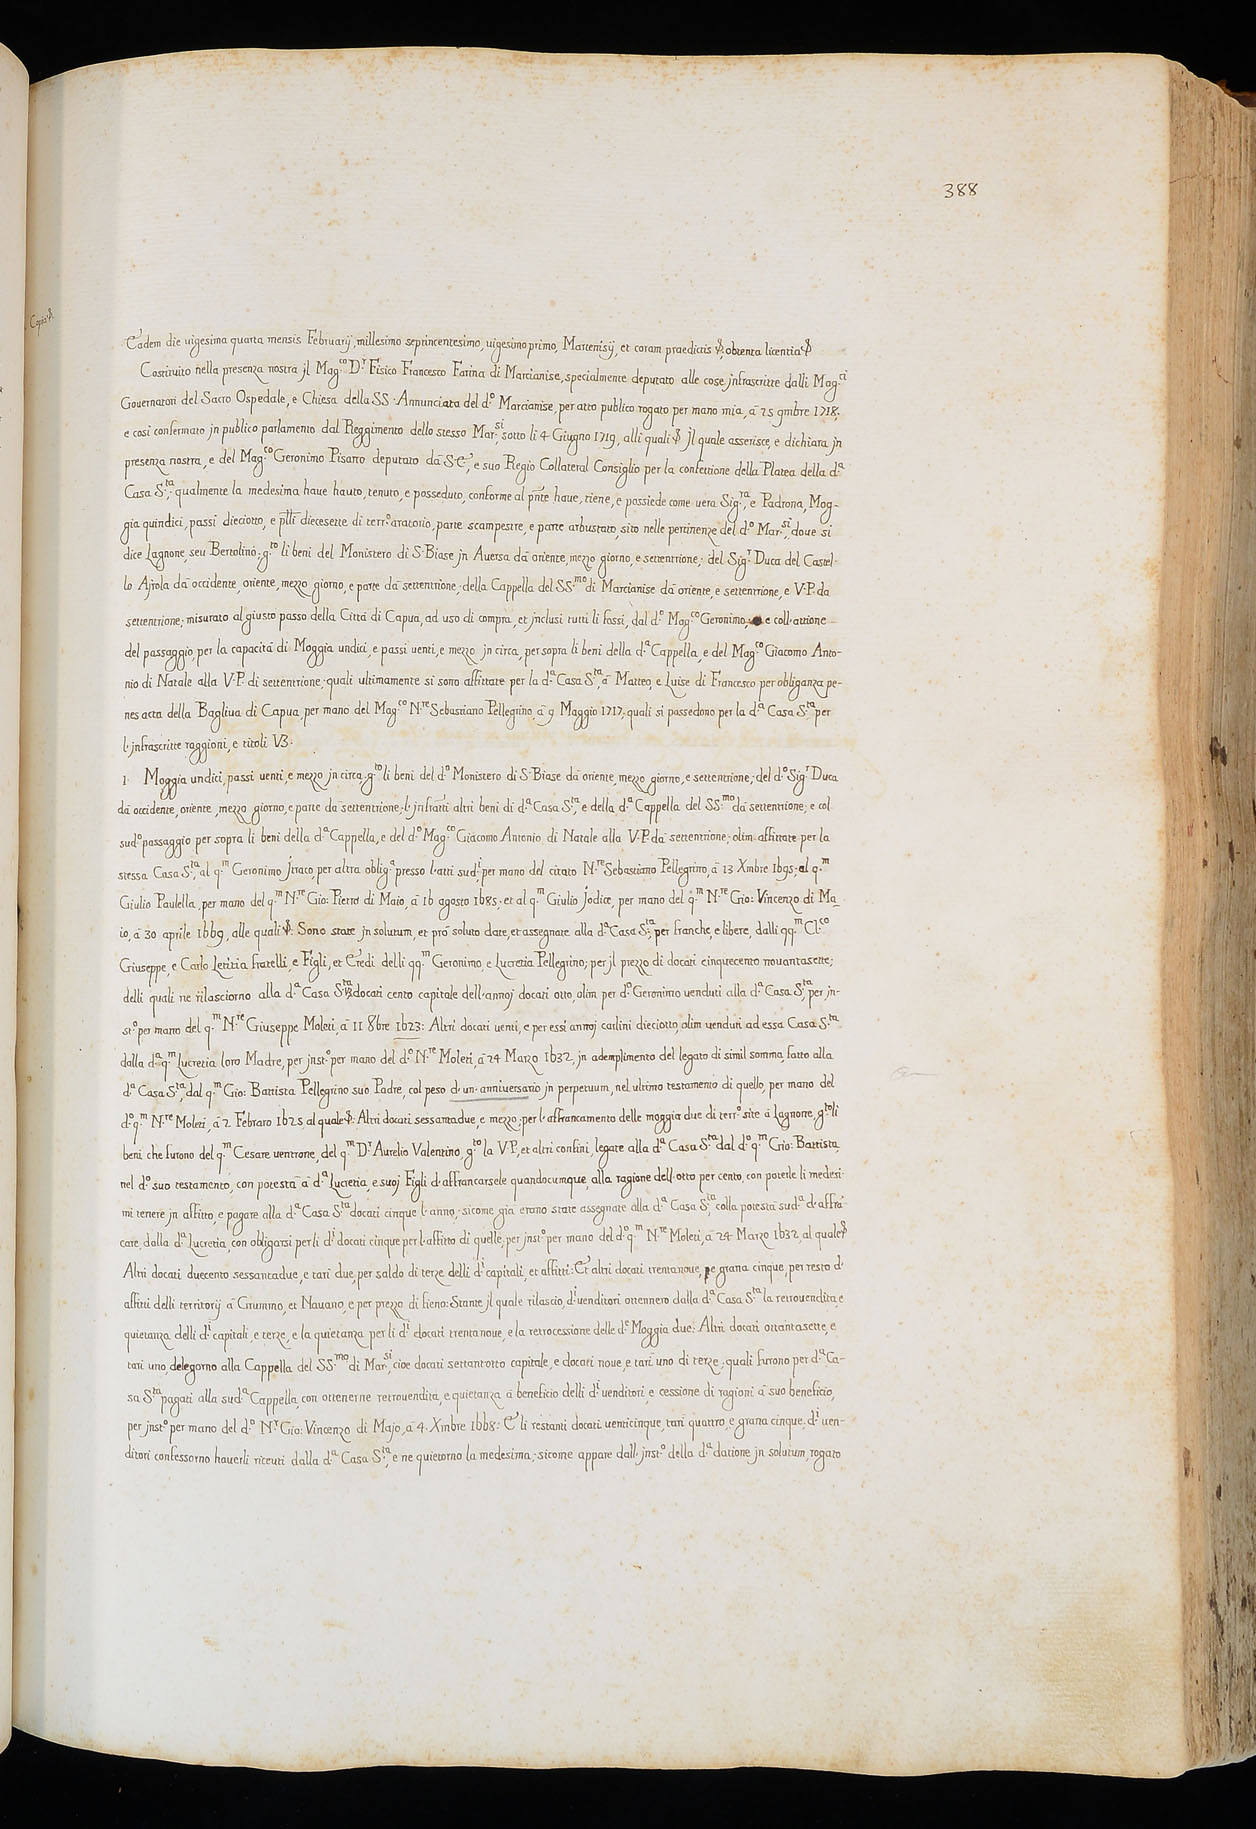 388
Copia &.
Eadem die uigesima quarta mensis Februarij, millesimo septincentesimo, uigesimo primo, Martenisij, et coram praedictis &, obtenta licentia &
Costituito nella presenza nostra jl Mag.co D.r Fisico Francesco Farina di Marcianise, specialmente deputato alle cose jnfrascritte dalli Mag.ci
Gouernatori del Sacro Ospedale, e Chiesa della SS. Annunciata del d.o Marcianise, per atto publico rogato per mano mia, à 25 9mbre 1718,
e così confermato jn publico parlamento dal Reggimento dello stesso Mar.si, sotto li 4 Giugno 1719, alli quali & jl quale asserisce, e dichiara jn
presenza nostra, e del Mag.co Geronimo Pisano deputato dà S.E., e suo Regio Collateral Consiglio per la confettione della Platea della d.a
Casa S.ta, qualmente la medesima haue hauto, tenuto, e posseduto, conforme al pnte haue, tiene, e possiede come uera Sig.ra, e Padrona, Mog-
gia quindici, passi dieciotto, e plli diecesette di terr.o aratorio, parte scampestre, e parte arbustato, sito nelle pertinenze del d.o Mar.si, doue si
dice Lagnone, seu Bertolino; g.to li beni del Monistero di S. Biase jn Auersa dà oriente, mezzo giorno, e settentrione; del Sig.r Duca del Castel-
lo Ajrola dà occidente, oriente, mezzo giorno, e parte dà settentrione; della Cappella del SS.mo di Marcianise dà oriente, e settentrione, e V.P. da
settentrione; misurato al giusto passo della Città di Capua, ad uso di compra, et jnclusi tutti li fossi, dal d.o Mag.co Geronimo, e coll'attione
del passaggio, per la capacità di Moggia undici, e passi uenti, e mezzo jn circa, per sopra li beni della d.a Cappella, e del Mag.co Giacomo Anto-
nio di Natale alla V.P. di settentrione; quali ultimamente si sono affittate per la d.a Casa S.ta, à Matteo, e Luise di Francesco per obliganza pe-
nes acta della Bagliua di Capua, per mano del Mag.co N.re Sebastiano Pellegrino, à 9 Maggio 1717; quali si possedono per la d.a Casa S.ta per
l'jnfrascritte raggioni, e titoli V3.
1. Moggia undici, passi uenti, e mezzo jn circa, g.to li beni del d.o Monistero di S. Biase dà oriente, mezzo giorno, e settentrione; del d.o Sig.r Duca
dà occidente, oriente, mezzo giorno, e parte da settentrione; l'jnfratti altri beni di d.a Casa S.ta, e della d.a Cappella del SS.mo dà settentrione; e col
sud.o passaggio per sopra li beni della d.a Cappella, e del d.o Mag.co Giacomo Antonio di Natale alla V.P. dà settentrione; olim affittate per la
stessa Casa S.ta, al q.m Geronimo Jtraco, per altra oblig.a presso l'atti sud.i, per mano del citato N.re Sebastiano Pellegrino, à 13 Xmbre 1695; al q.m
Giulio Paulella, per mano del q.m N.re Gio: Pietro di Maio, à 16 agosto 1685; et al q.m Giulio Jodice, per mano del q.m N.re Gio: Vincenzo di Ma-
io, à 30 aprile 1669, alle quali &. Sono state jn solutum, et prò soluto date, et assegnate alla d.a Casa S.ta, per franche, e libere, dalli qq.m Cl.co
Giuseppe, e Carlo Letizia fratelli, e Figli, et Eredi delli qq.m Geronimo, e Lucretia Pellegrino; per jl prezzo di docati cinquecento nouantasette;
delli quali ne rilasciorno alla d.a Casa S.ta docati cento capitale dell'annoj docati otto, olim per d.o Geronimo uenduti alla d.a Casa S.ta, per jn-
st.o per mano del q.m N.re Giuseppe Moleti, à 11 8bre 1623: Altri docati uenti, e per essi annoj carlini dieciotto, olim uenduti ad essa Casa S.ta
dalla d.a q.m Lucretia loro Madre, per jnst.o per mano del d.o N.re Moleti, à 24 Marzo 1632, jn adempimento del legato di simil somma, fatto alla
d.a Casa S.ta, dal q.m Gio: Battista Pellegrino suo Padre, col peso d'un'anniuersario jn perpetuum, nel ultimo testamento di quello, per mano del
d.o q.m N.re Moleti, à 2 Febraro 1625, al quale &: Altri docati sessantadue, e mezzo; per l'affrancamento delle moggia due di terr.o site à Lagnone, g.to li
beni che furono del q.m Cesare uentrone, del q.m D.r Aurelio Valentino, g.to la V.P., et altri confini, legate alla d.a Casa S.ta dal d.o q.m Gio: Battista,
nel d.o suo testamento, con potestà à d.a Lucretia, e suoj Figli d'affrancarsele quandocumque, alla ragione dell'otto per cento, con poterle li medesi-
mi tenere jn affitto, e pagare alla d.a Casa S.ta docati cinque l'anno; sicome già erano state assegnate alla d.a Casa S.ta, colla potestà sud.a d'affrà-
care, dalla d.a Lucretia, con obligarsi per li d.i docati cinque per l'affitto di quelle, per jnst.o per mano del d.o q.m N.re Moleti, à 24 Marzo 1632, al quale &
Altri docati duecento sessantadue, e tarì due, per saldo di terze delli d.i capitali, et affitti: Et altri docati trentanoue, e grana cinque, per resto d'
affitti delli territorij à Grummo, et Nauano, e per prezzo di fieno: Stante jl quale rilascio, d.i uenditori ottennero dalla d.a Casa S.ta la retrouendita, e
quietanza delli d.i capitali, e terze, e la quietanza per li d.i docati trentanoue, e la retrocessione delle d.e Moggia due: Altri docati ottantasette, e
tarì uno, delegorno alla Cappella del SS.mo di Mar.si, cioè docati settant'otto capitale, e docati noue, e tarì uno di terze; quali furono per d.a Ca-
sa S.ta pagati alla sud.a Cappella, con ottenerne retrouendita, e quietanza à beneficio delli d.i uenditori, e cessione di ragioni à suo beneficio,
per jnst.o per mano del d.o N.r Gio: Vincenzo di Majo, à 4. Xmbre 1668: E li restanti docati uenticinque, tarì quattro, e grana cinque, d.i uen-
ditori confessorno hauerli riceuti dalla d.a Casa S.ta, e ne quietorno la medesima; sicome appare dall'jnst.o della d.a datione jn solutum, rogato